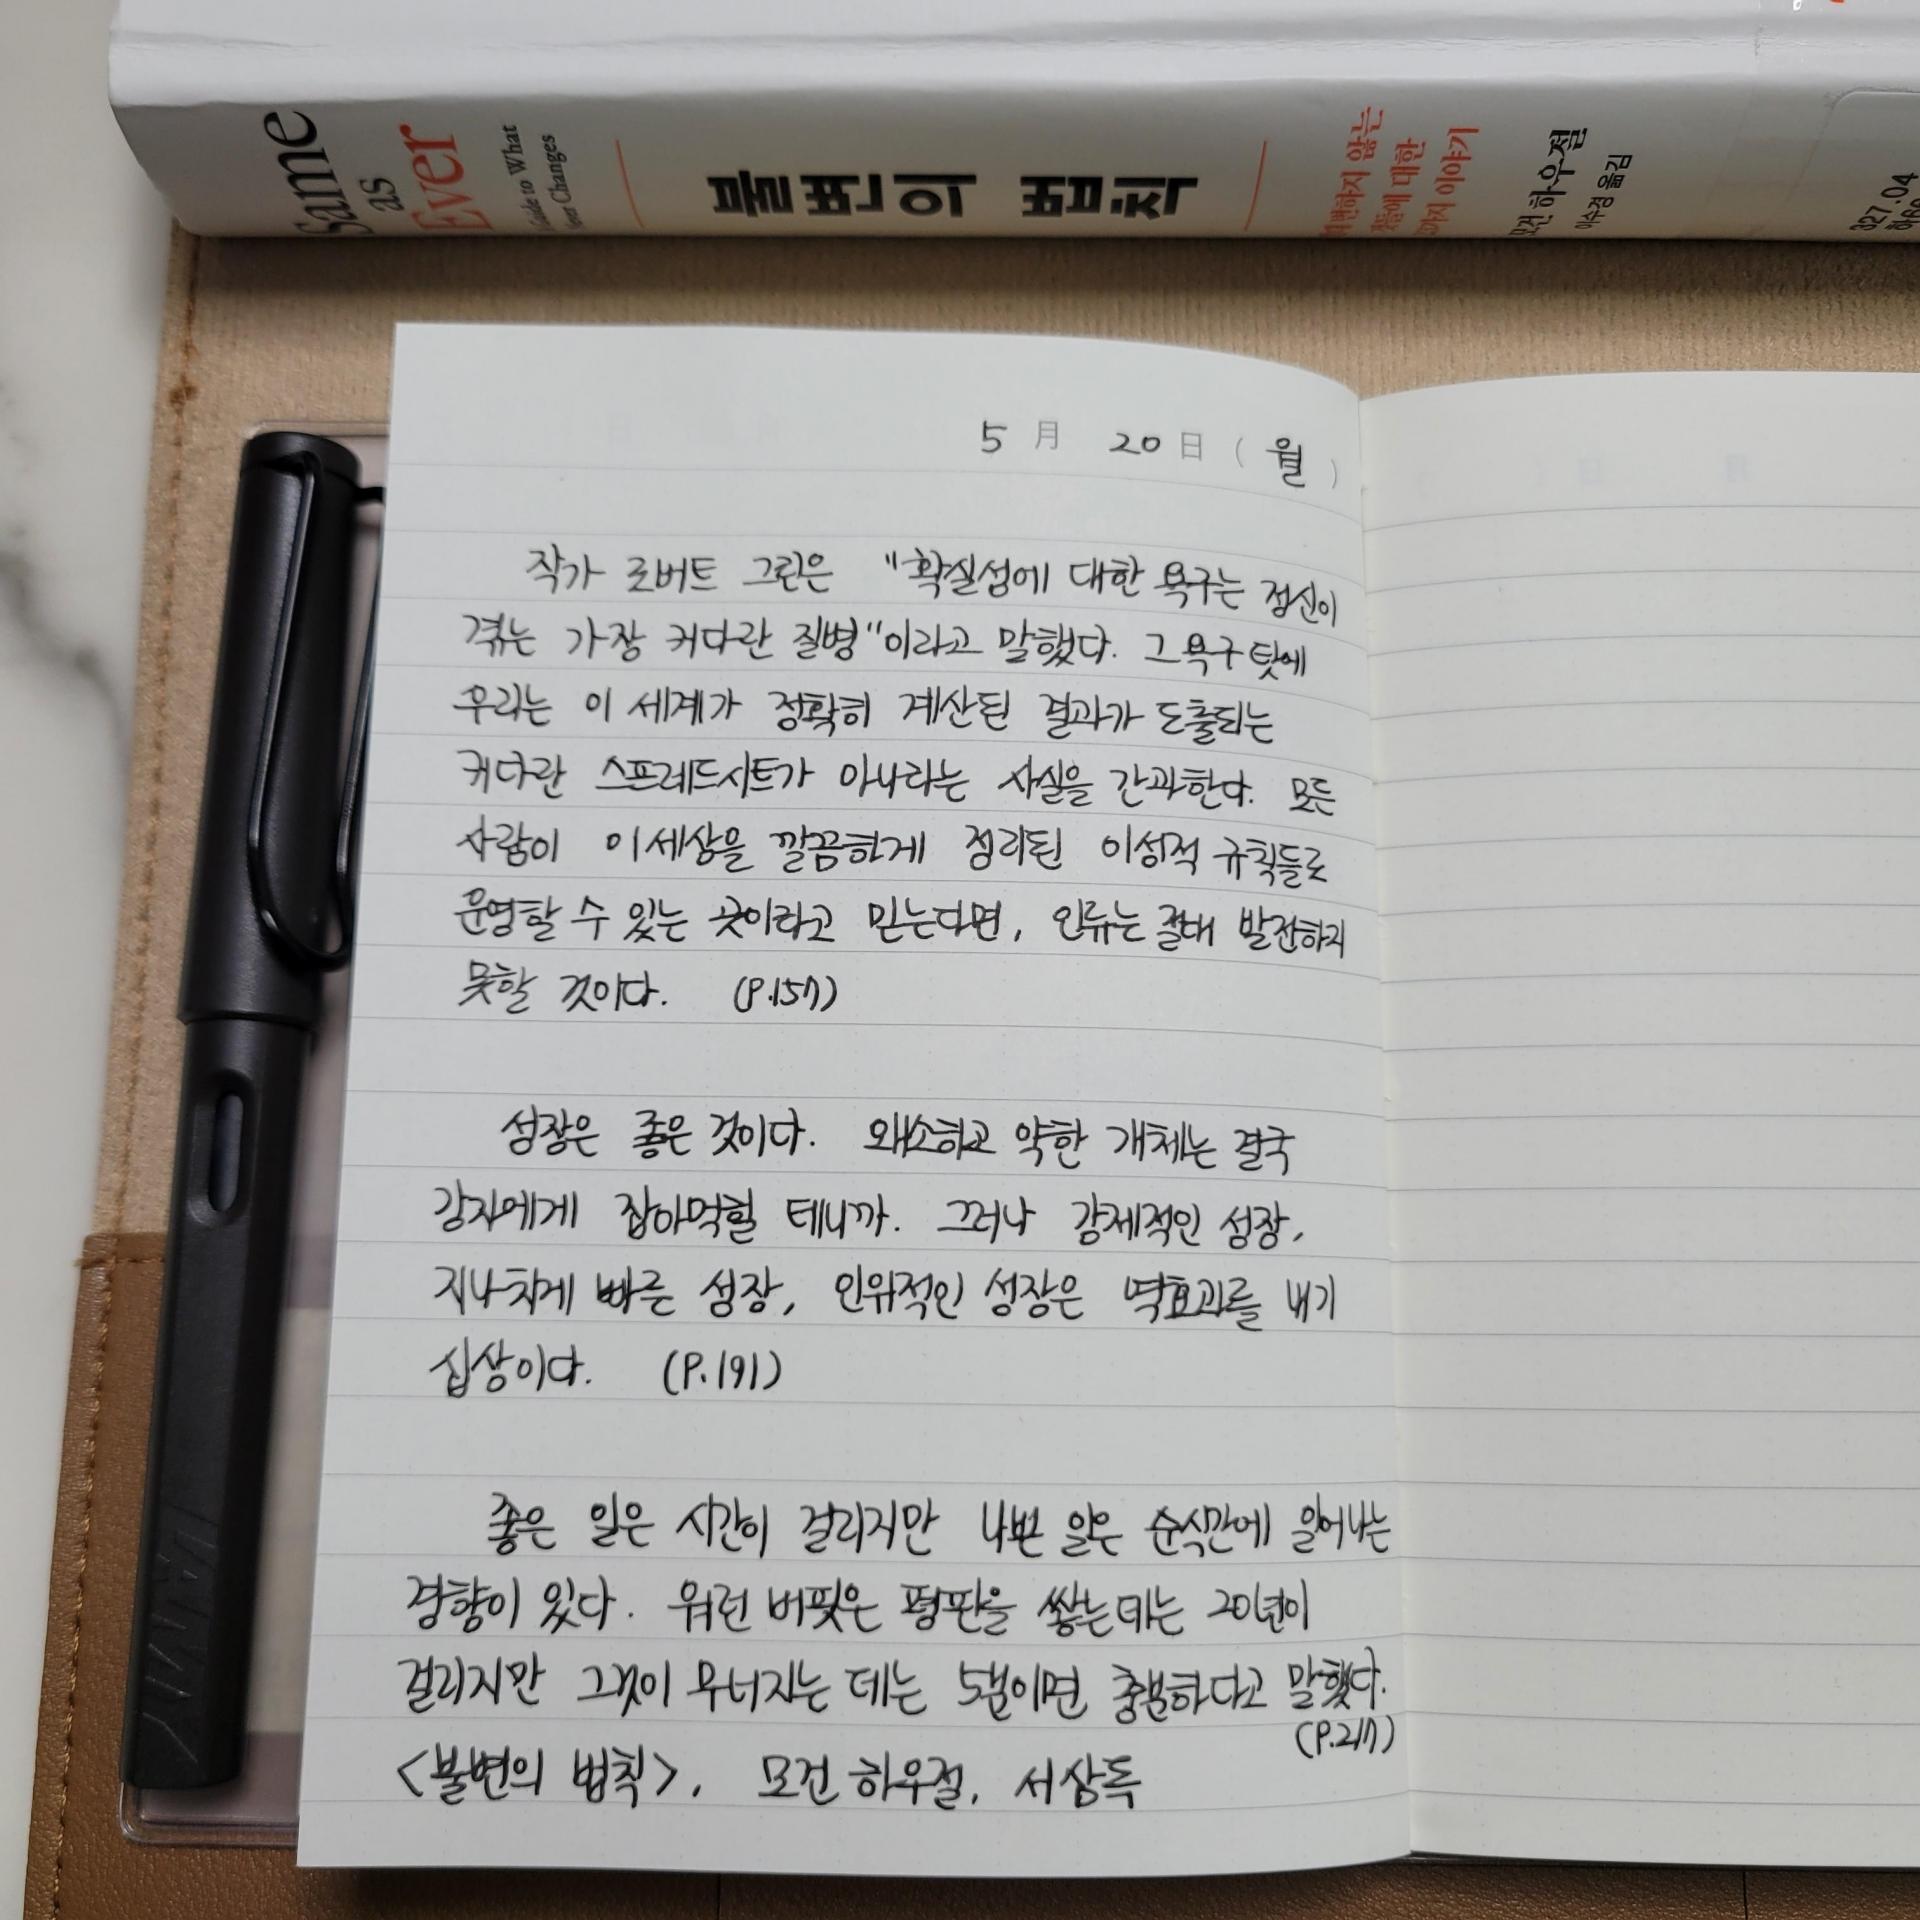 Same
as
Ever
Guide to What
Changes
불변의 법칙
변하지 않는
것들에 대한
가지 이야기
모건 하우절
이수경 옮김
327.04
5 月 20 日 ( 월 )
작가 로버트 그린은 "확실성에 대한 욕구는 정신이
겪는 가장 커다란 질병"이라고 말했다. 그 욕구 탓에
우리는 이 세계가 정확히 계산된 결과가 도출되는
커다란 스프레드시트가 아니라는 사실을 간과한다. 모든
사람이 이 세상을 깔끔하게 정리된 이성적 규칙들로
운영할 수 있는 곳이라고 믿는다면, 인류는 절대 발전하지
못할 것이다. (P.157)
성장은 좋은 것이다. 왜소하고 약한 개체는 결국
강자에게 잡아먹힐 테니까. 그러나 강제적인 성장,
지나치게 빠른 성장, 인위적인 성장은 역효과를 내기
십상이다. (P.191)
좋은 일은 시간이 걸리지만 나쁜 일은 순식간에 일어나는
경향이 있다. 워런 버핏은 평판을 쌓는데는 20년이
걸리지만 그것이 무너지는 데는 5분이면 충분하다고 말했다.
(P.217)
<불변의 법칙>, 모건 하우절, 서삼독
LAMY